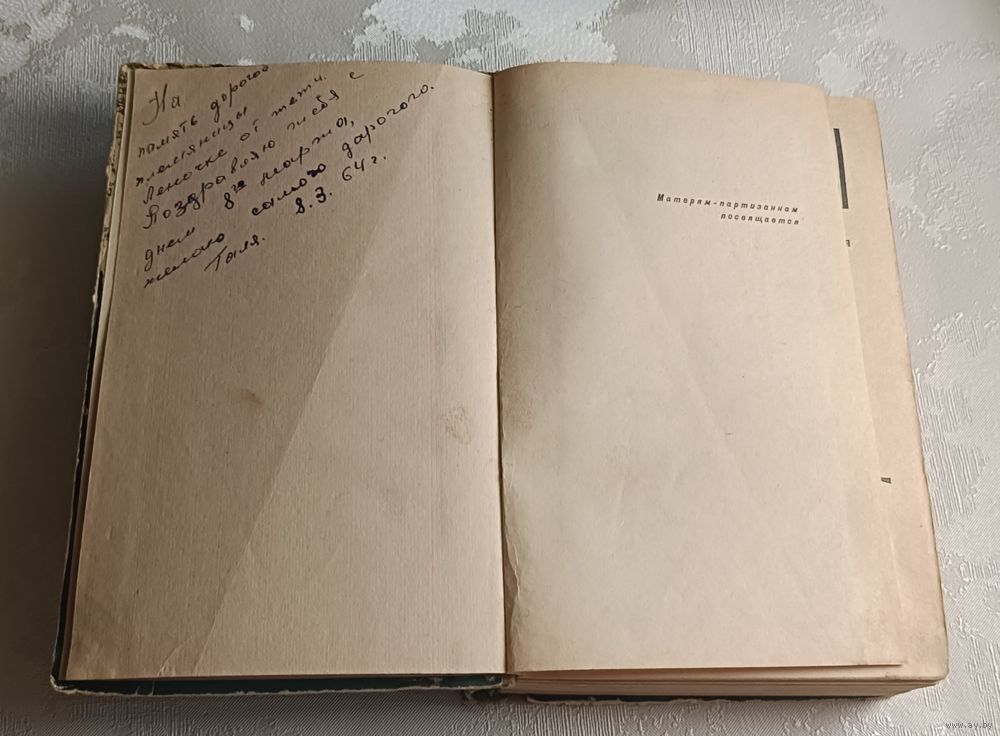 На
память дорогой
племяницы
Леночке от тети.
Поздравляю тебя с
днем 8го марта,
желаю самого дорогого.
Галя. 8.3. 64 г.
Матерям-партизанкам
посвящается
я
А
www.ay.by